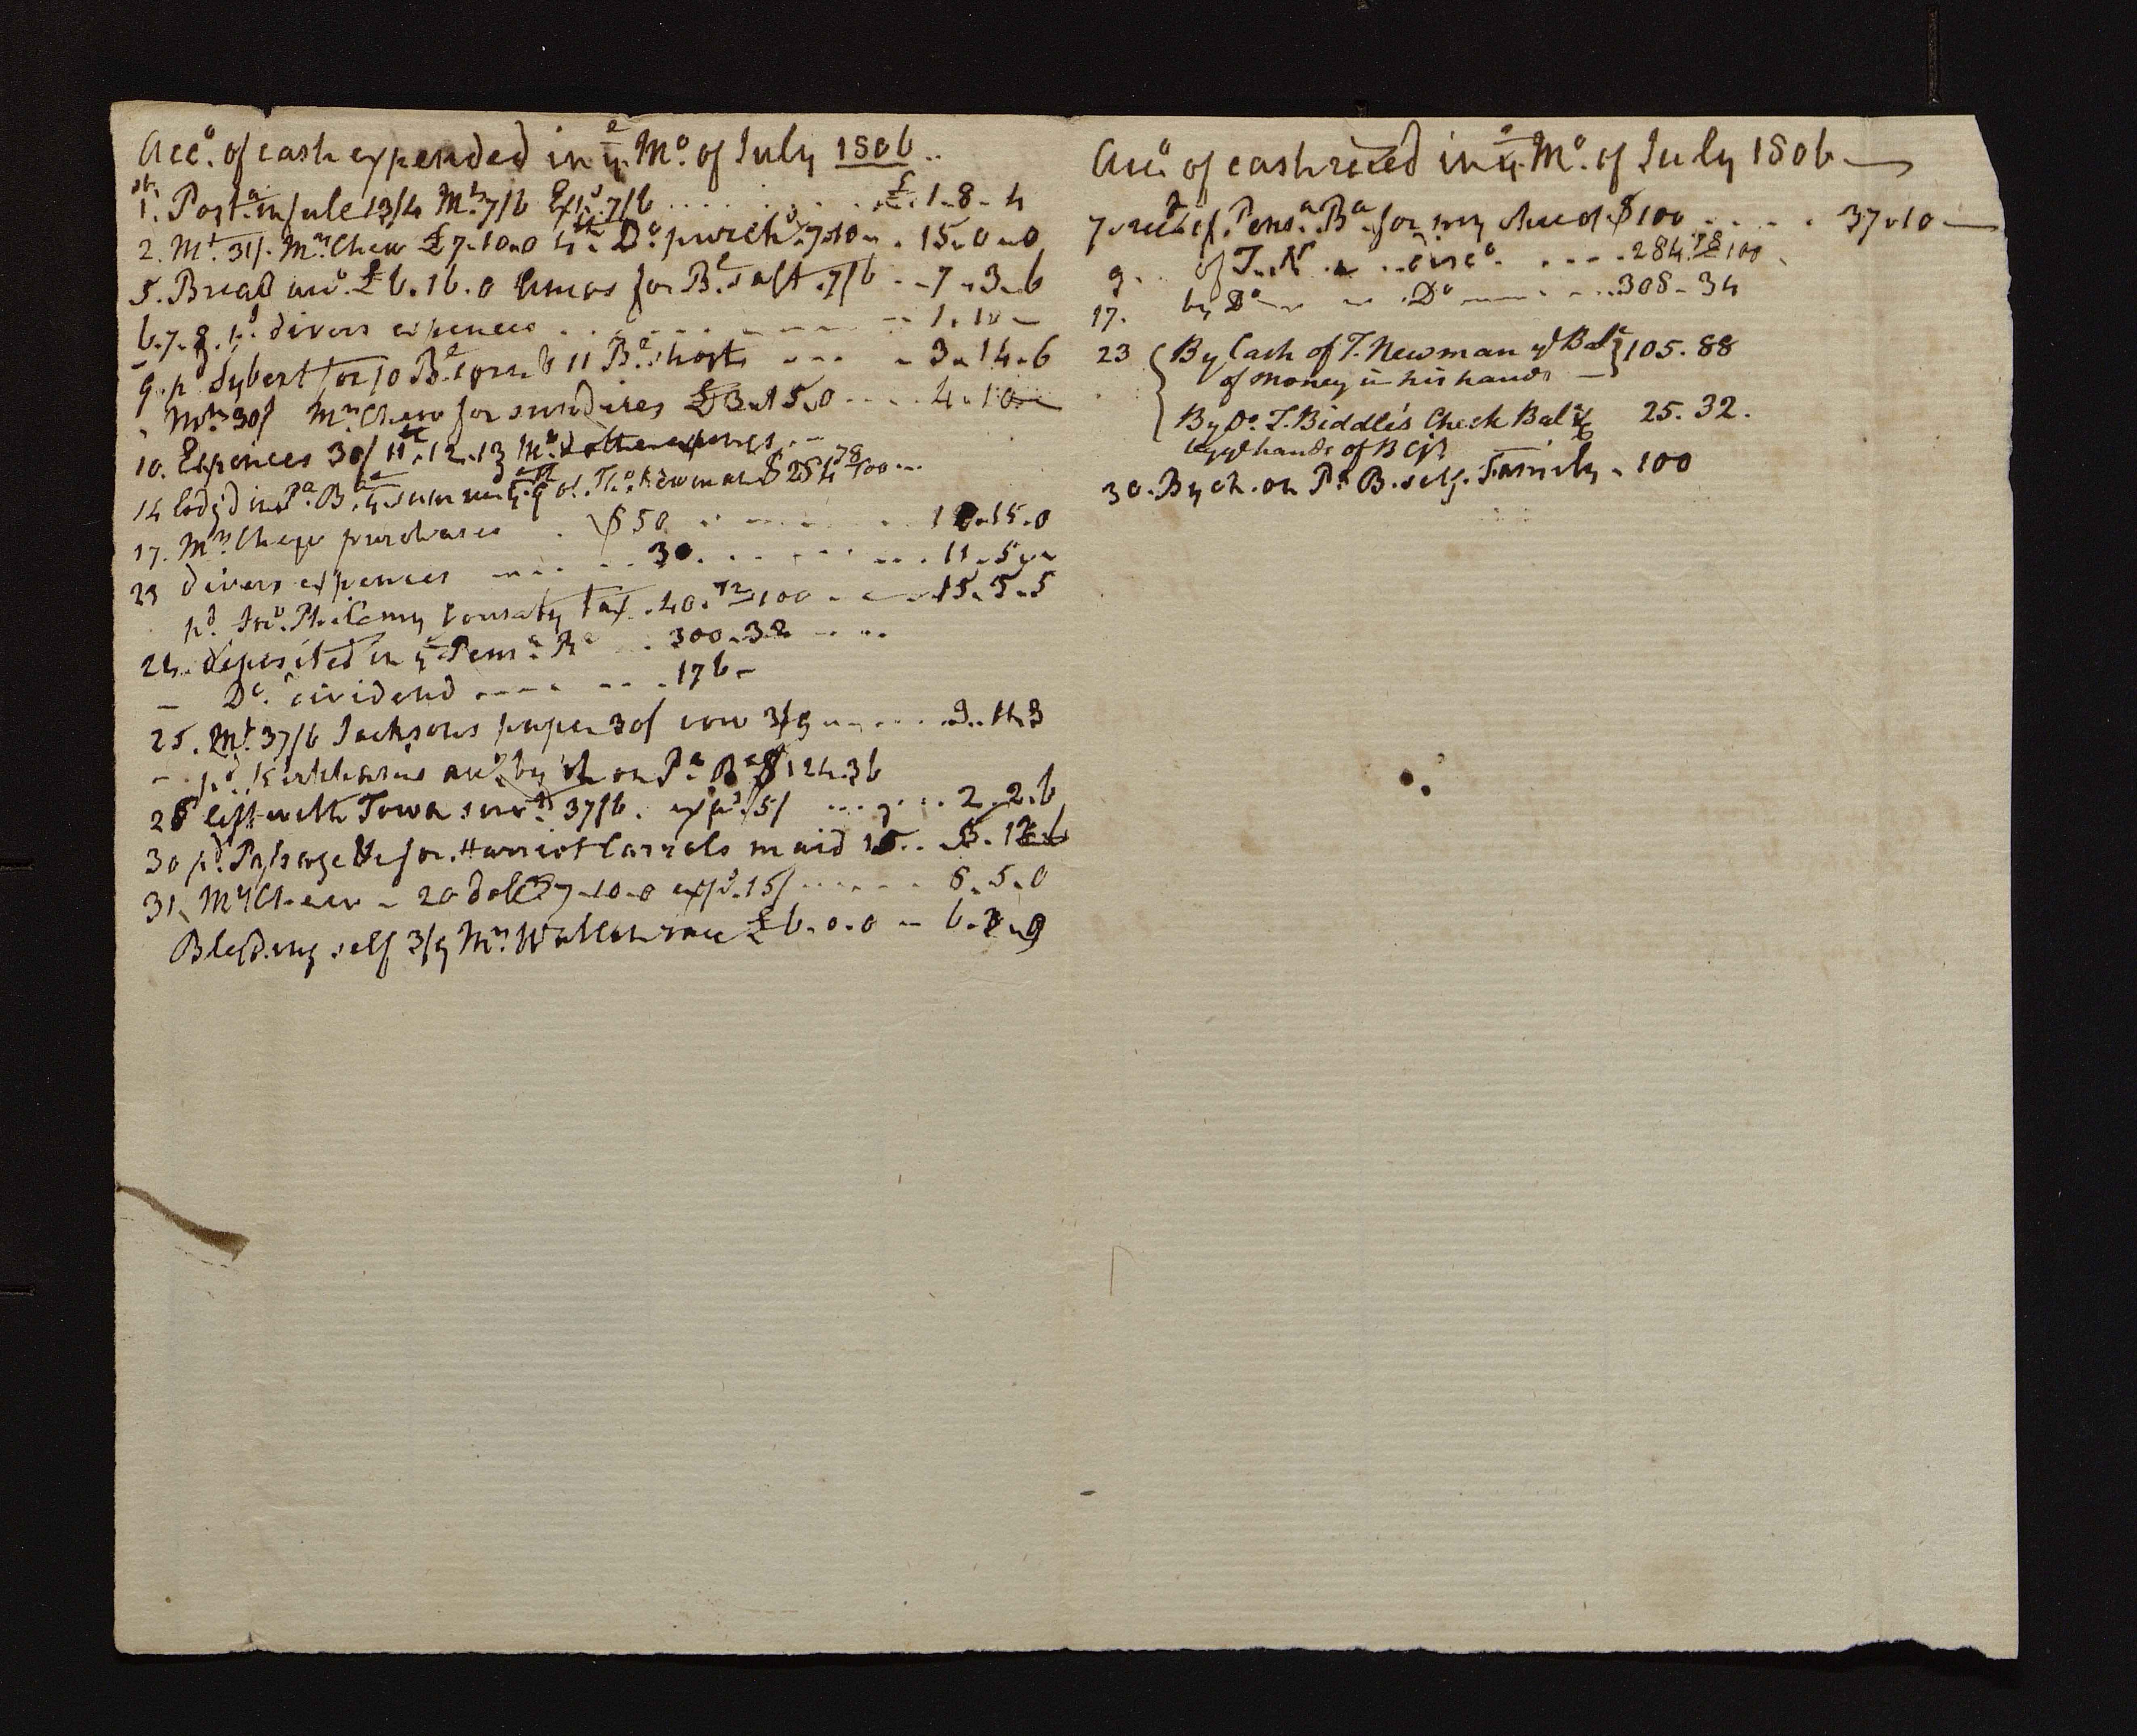 Acc.º of cash expended in yᵉ Mº. of July 1806..
1.ˢᵗ Postᵃ. in Jule 13/4 Mᵗ. 7/6 Expˢ. 7/6 . . . . . £. 1-8-4
2. Mᵗ. 31/. Mʳˢ. Chew £7-10-0 4.ᵗʰ Dº. purchˢ. 7.10 - . 15-0-0
5. Bread accº. £6.16.0 for Bˡ. salt. 7/6 - - 7-3-6
6.7.8. pᵈ. divers expences . . . - - - 1.10 -
9. pᵈ. Sybert for 10 Bˡ. 11 Bˡ. shorts - - - 3-14-6
Mᵗ. 30/ Mʳˢ. Chew for sundries £3-15.0 - - - 4-10 -
10. Expences 30/ 11.12.13 Mᵗ. & other expences. -
14 lodgd in Pᵃ. Bᵃ. yᵉ sum recd yᵉ 9ᵗʰ of Thº. Newman $284 78/100 ...
17. Mʳˢ Chew purchases . $50 . . - - - . 18-15.0
23 divers expences - - - . . 30. . . . - - . . . 11-5 -
pᵈ. county tax . 40.72/100 . - - 15-5-5
24. deposited in yᵉ Pensᵃ. Bᵃ . 300-32 - - - -
- Dº. dividend - - - - - - 176 -
25. Mᵗ. 37/6 Jacksons paper 30/ cow 3/9 - - . . . 3.11.3
- pᵈ. accº. by ch on Pᵃ. Bᵃ $124.36
28 left with Town servᵗˢ. 37/6. expˢ. 5/ . . . . . 2-2.6
30 pᵈ. Passage &c for Harriot Carrols maid 15 . . 5.12.6
31. Mʳˢ Chew - 20 dolˢ 7-10-0 expˢ. 15/ . . . . . . 8.5.0
Bleeding self 3/9 Mʳˢ. £6.0.0 - 6.3-9
Accº of cash reced in yᵉ Mº. of July 1806 —
7. recᵈ of Pensᵃ. Bᵃ. for my check $100 . . . . . 37.10 —
9. of T. N. - . . . . . . 284.78/100
17. by Dº - - . Dº - - - . . 308-34
23 By Cash of T. Newman yᵉ Balᶜᵉ 105.88
of money in his hands —
By Dº. T. Biddle's Check Balᶜᵉ 25.32.
in yᵉ hands of B CJʳ
30. By ch. on Pᵃ B. self. Family - 100